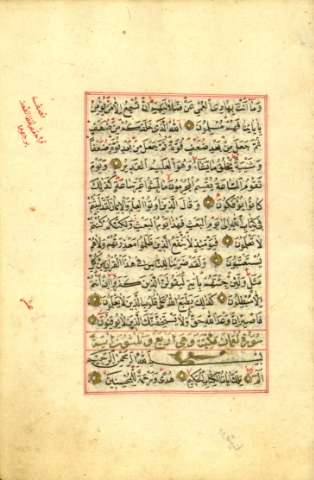 وما انت بهاد العمي عن ضلالتهم ان تسمع الا من يؤمن
باياتنا فهم مسلمون الله الذي خلقكم من ضعف
ثم جعل من بعد ضعف قوة ثم جعل من بعد قوة ضعفا
وشيبة يخلق ما يشاء وهو العليم القدير ويوم
تقوم الساعة يقسم المجرمون ما لبثوا غير ساعة كذلك
كانوا يؤفكون وقال الذين اوتوا العلم والايمان لقد لبثتم
في كتاب الله الى يوم البعث فهذا يوم البعث ولكنكم كنتم
لا تعلمون فيومئذ لا ينفع الذين ظلموا معذرتهم ولا هم
يستعتبون ولقد ضربنا للناس في هذا القران من كل
مثل ولئن جئتهم باية ليقولن الذين كفروا ان انتم
الا مبطلون كذلك يطبع الله على قلوب الذين لا يعلمون
فاصبر ان وعد الله حق ولا يستخفنك الذين لا يوقنون
سورة لقمان مكية وهي اربع وثلثون اية
بسم الله الرحمن الرحيم
الم تلك ايات الكتاب الحكيم هدى ورحمة للمحسنين